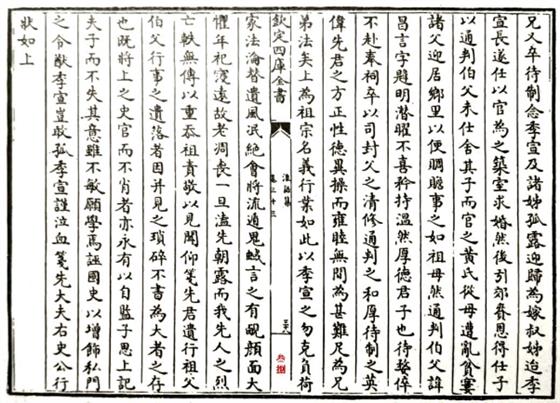 兄又卒待制念季宣及諸姊孤露迎歸為嫁叔姊迨季
宣長遂任以官為之築室求婚然後引郊賚恩得任子
以通判伯父未仕舍其子而官之黃氏從母遭亂貧窶
諸父迎居鄉里以便賙贍事之如祖母然通判伯父諱
昌言字題明潛曜不喜矜持温然厚德君子也待婺倅
不赴奉祠卒以司封父之清修通判之和厚待制之英
偉先君之方正性德異操而雍睦無間為甚難足為兄
弟法矣上為祖宗名義行業如此以季宣之勿克負荷
欽定四庫全書
浪語集
卷三十三
三六
叁捌
家法淪替遺風泯絶會將流遁鬼蜮言之有靦顔面大
懼年祀寖遠故老凋喪一旦溘先朝露而我先人之烈
亡軼無傳以重忝祖責敬以見聞仰箋先君遺行祖父
伯父行事之遺落者因并見之瑣碎不書為大者之存
也既將上之史官而不肖者亦永有以自監子思上記
夫子而不失其意雖不敏願學焉誣國史以增飾私門
之令猷季宣豈敢孤季宣謹泣血箋先大夫右史公行
狀如上